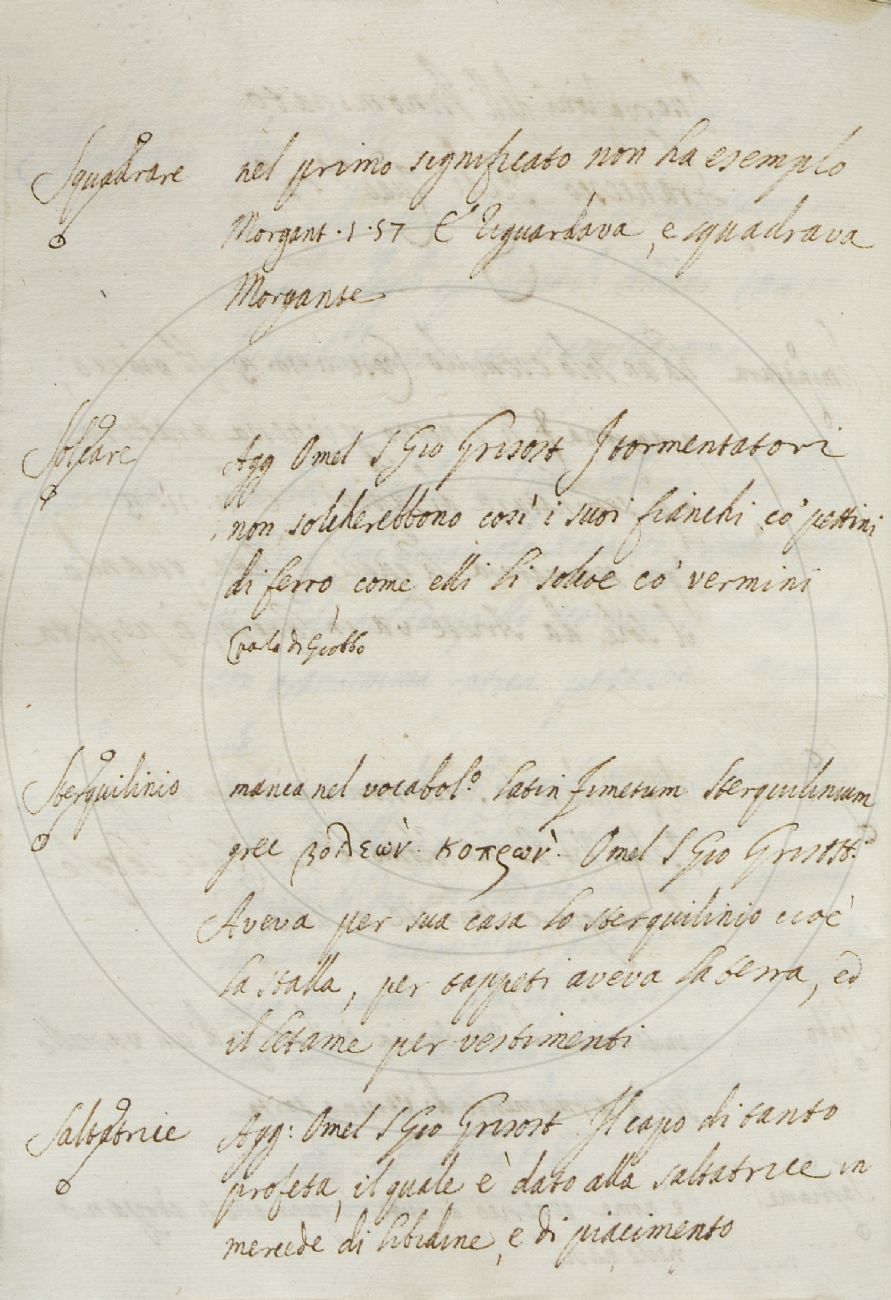 Squadrare nel primo significato non ha esemplo
Morgant. 1. 57 E riguardava, e squadrava
Morgante
Solcare Agg Omel S Gio Grisost I tormentatori
non solcherebbono così i suoi fianchi co' pettini
di ferro come elli li solcoe co' vermini
Parla di Giobbo
Sterquilinio manca nel vocabol.o latin fimetum sterquilinium
grec βολεών. κοπρών. Omel S Gio Grisost.o
Aveva per sua casa lo sterquilinio cioè
la stalla, per tappeti aveva la terra, ed
il letame per vestimenti
Saltatrice Agg: Omel S Gio Grisost Il capo di tanto
profeta, il quale è dato alla saltatrice in
mercede di libidine, e di piacimento